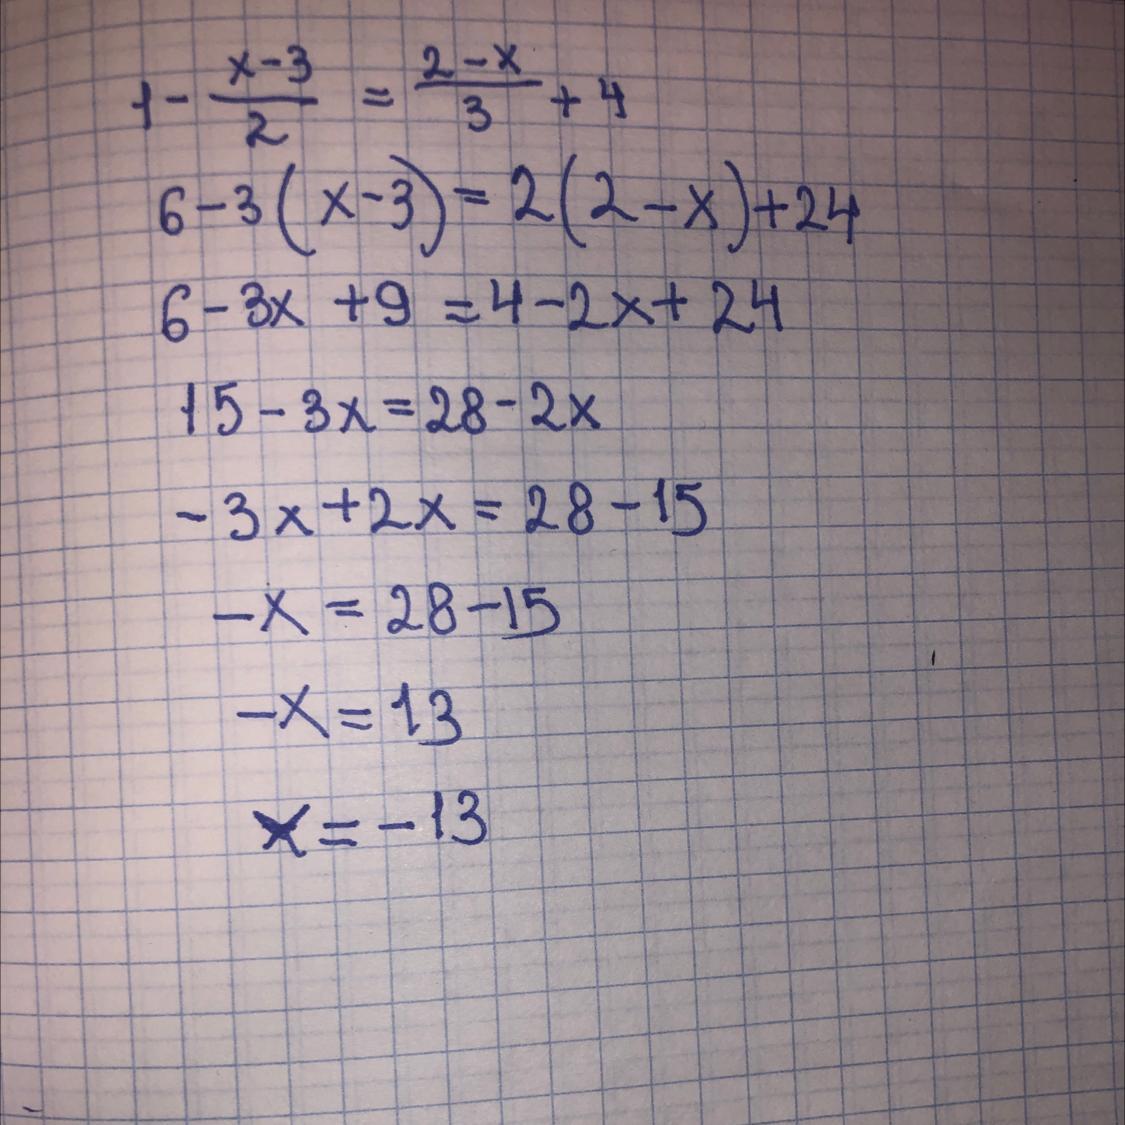 1 - (x-3)/2 = (2-x)/3 + 4
6-3(x-3)=2(2-x)+24
6-3x+9=4-2x+24
15-3x=28-2x
-3x+2x=28-15
-x=28-15
-x=13
x=-13